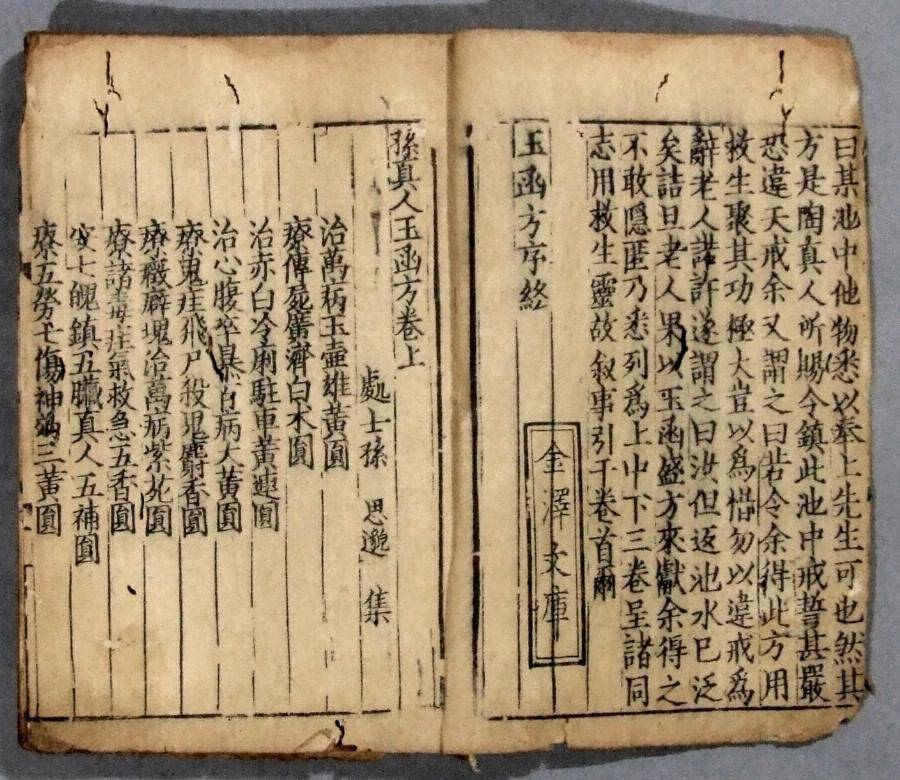 曰某池中他物悉以奉上先生可也然其
方是陶真人所賜令鎮此池中戒誓甚嚴
恐違天戒余又謂之曰若令余得此方用
救生聚其功極大豈以為惜勿以違戒為
辭老人諾許遂謂之曰汝但返池水已泛
矣詰旦老人果以玉函盛方來獻余得之
不敢隱匿乃悉列為上中下三卷呈諸同
志用救生靈故叙事引于卷首爾
玉函方序終
金澤文庫
孫真人玉函方卷上
處士孫思邈集
治萬病玉壺雄黃圓
療傳屍廣濟白朮圓
治赤白冷痢駐車黃連圓
治心腹卒暴百病大黃圓
療鬼疰飛尸殺鬼麝香圓
療癥癖塊治萬病紫菀圓
療諸毒疰氣救急五香圓
安七魄鎮五臟真人五補圓
療五勞七傷神三黃圓